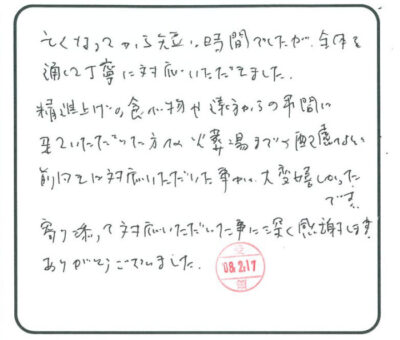 亡くなってから短い時間でしたが、全体を
通して丁寧に対応いただきました。
精進上げの食べ物や遠方からの弔問に
来ていただいた方への火葬場まで配慮
前向きに対応いただいた事が、大変嬉しかった
です。
寄り添って対応いただいた事に深く感謝します。
ありがとうございました。
08.2.17